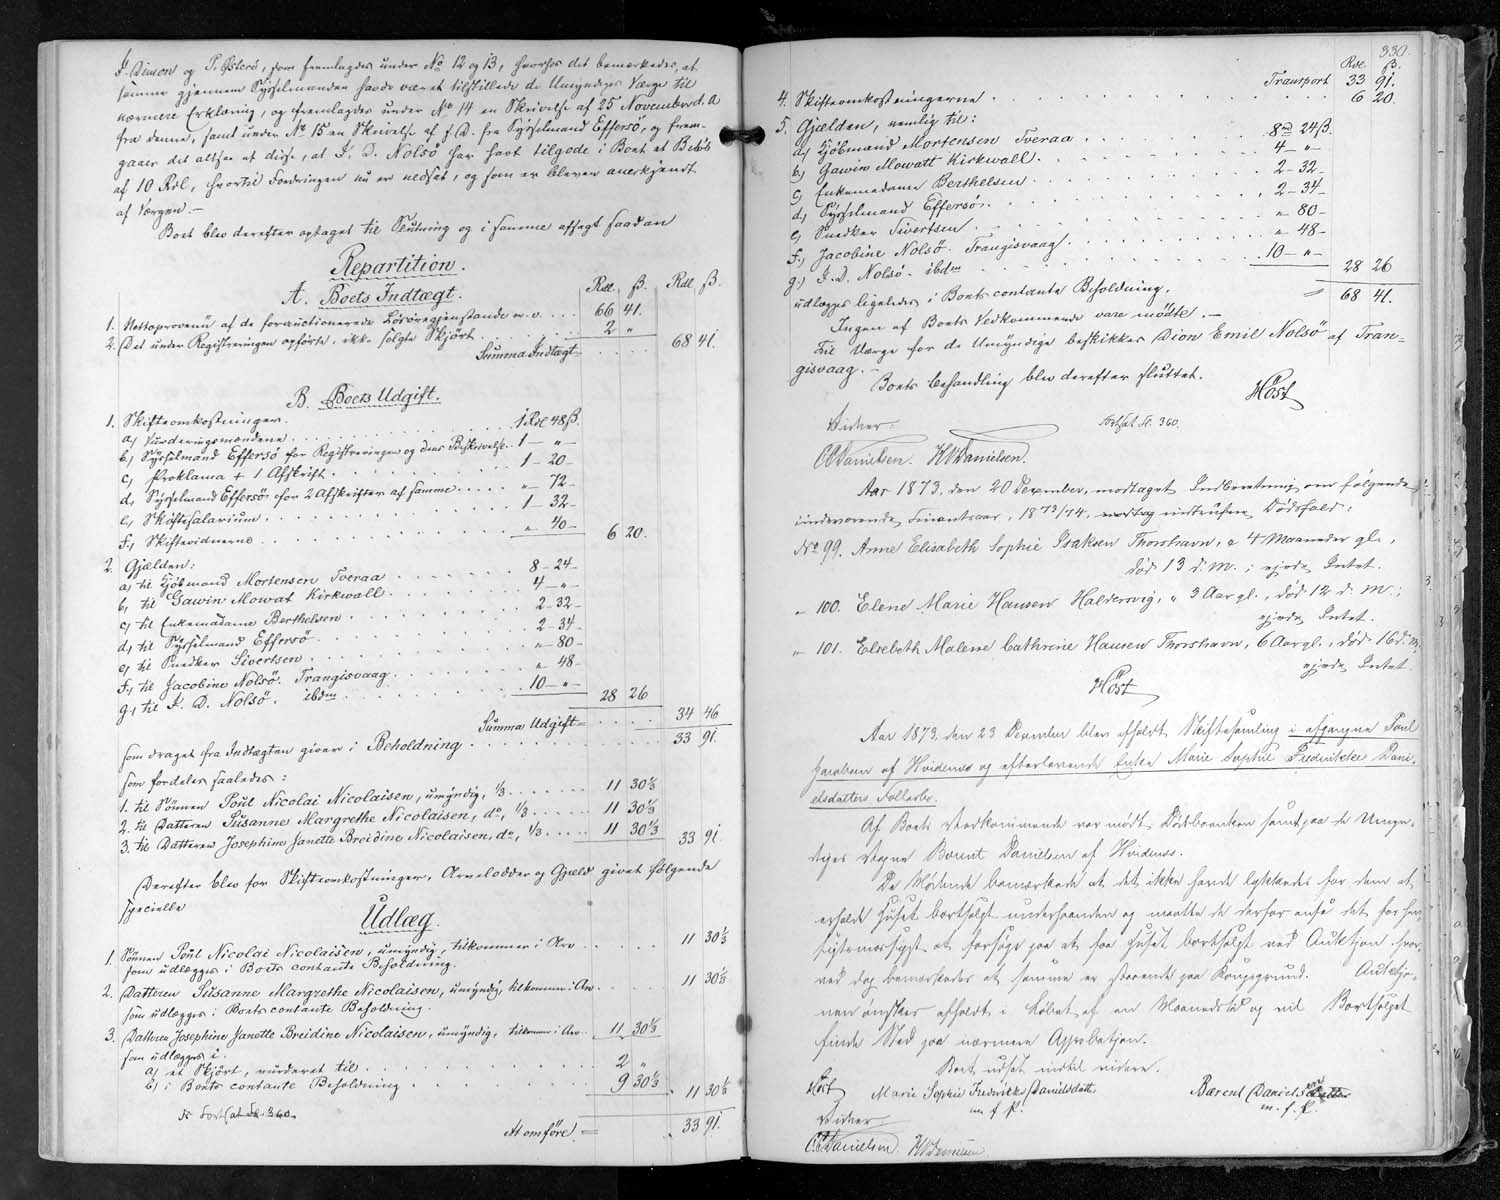 J. Simson og P. Østerö, som fremlagdes under No 12 og 13, hvorhos det bemærkedes, at
samme gjennem Sysselmanden havde været tilstillede de Umyndiges Værge til
nærmere Erklæring, og fremlagdes under No 14 en Skrivelse af 25 November d. A
fra denne, samt under No 15 en Skrivelse af f. D. fra Sysselmand Effersö, og frem-
gaaer det altsaa at disse, at J. D. Nolsö har havt tilgode i Boet et Beløb
af 10 Rdl, hvortil Fordringen nu er nedsat, og som er bleven anerkjendt
af Værgen.—
Boet blev derefter optaget til Slutning og i samme afsagt saadan
Repartition.
A. Boets Indtægt.
Rdl ß. Rdl ß.
1. Nettoprovenü af de forauctionerede Lösöregjenstande m. v. .... 66 41.
2. Det under Registreringen opførte, ikke solgte Skjört .... 2 "
Summa Indtægt= .... 68 41.
B. Boets Udgift.
1. Skifteomkostninger.
a, Vurderingsmændene .... 1 Rdl 48 ß.
b, Sysselmand Effersö for Registreringen og dens Beskrivelse .. 1 — " —
c, Proklama + 1 Afskrift .... 1 — 20 —
d, Sysselmand Effersö for 2 Afskrifter af samme .... " — 72 —
e, Skiftesalarium .... 1 — 32 —
f, Skiftevidnerne .... " 40 — 6 20.
2. Gjælden:
a, til Kjöbmand Mortensen Tveraa .... 8 — 24 —
b, til Gawin Mowat Kirkwall .... 4 — " —
c, til Enkemadame Berthelsen .... 2 — 32 —
d, til Sysselmand Effersö .... 2 — 34 —
e, til Snedker Sivertsen .... " — 80 —
f, til Jacobine Nolsö. Trangisvaag .... " — 48 —
g, til J. D. Nolsö. ibdm .... 10 — " — 28 26
Summa Udgift= .... 34 46
som draget fra Indtægten giver i Beholdning .... 33 91.
som fordeles saaledes:
1. til Sönnen Poül Nicolai Nicolaisen, umyndig, 1/3 .... 11 30 1/3
2. til Datteren Süsanne Margrethe Nicolaisen, do, 1/3 .... 11 30 1/3
3. til Datteren Josephine Janette Breidine Nicolaisen, do, 1/3 .... 11 30 1/3 33 91.
Derefter blev for Skifteomkostninger, Arvelodder og Gjæld givet følgende
specielle
Udlæg.
1. Sönnen Poül Nicolai Nicolaisen, umyndig, tilkommer i Arv .... 11 30 1/3
som udlægges i Boets contante Beholdning.
2. Datteren Süsanne Margrethe Nicolaisen, umyndig, tilkommer i Arv .... 11 30 1/3
som udlægges i Boets contante Beholdning.
3. Datteren Josephine Janette Breidine Nicolaisen, umyndig, tilkommer i Arv .. 11 30 1/3
som udlægges i:
a, et Skjört, vurderet til .... 2 "
b, i Boets contante Beholdning .... 9 30 1/3 11 30 1/3
Fortsat Fr. 360.
At omføre= 33 91.
330.
Rdl ß.
Transport 33 91.
4. Skifteomkostningerne .... 6 20.
5. Gjælden, nemlig til:
a, Kjöbmand Mortensen Tveraa .... 8 Rd 24 ß.
b, Gawin Mowatt Kirkwall .... 4 — " —
c, Enkemadame Berthelsen .... 2 — 32 —
d, Sysselmand Effersö .... 2 — 34 —
e, Snedker Sivertsen .... " 80 —
f, Jacobine Nolsö. Trangisvaag .... " 48 —
g, J. D. Nolsö. ibdm .... 10 — " — 28 26
udlægges ligeledes i Boets contante Beholdning. = 68 41.
Ingen af Boets Vedkommende vare mødte.—
Til Værge for de Umyndige beskikkes Dion Emil Nolsö af Tran-
gisvaag.—
Boets Behandling blev derefter sluttet.
Höst
Fortsat Fr. 360.
Vidner:
C C Danielsen. H V Danielsen.
Aar 1873, den 20 December, modtaget Indberetning om følgende
indeværende Finantsaar, 1873/74, modtag indtrufne Dødsfald:
No 99. Anne Elisabeth Sophie Isaksen Thorshavn, 4 Maaneder gl.,
død 13 d. M.; ejede Intet.
" 100. Elene Marie Hansen Haldersvig, 3 Aar gl., død 12 d. M.;
ejede Intet.
" 101. Elsebeth Malene Cathrine Hansen Thorshavn, 6 Aar gl., død 16 d. M.
ejede Intet.
Höst
Aar 1873 den 23 December blev afholdt Skiftesamling i afgangne Poul
Jacobsen af Hvidenæs og efterlevende Enke Marie Sophie Frederikke Dani-
elsdatters Fællesbo.
Af Boets Vedkommende var mødt Enken samt paa de Umyn-
diges Vegne Bærent Danielsen af Hvidenæs.
De Mødende bemærkede at det ikke havde lykkedes for dem at
erholde Huset bortsolgt underhaanden og maatte de derfor anse det for hen-
sigtsmæssigst at forsøge paa at faa Huset bortsolgt ved Auktion hvor-
ved dog bemærkedes at samme er staaende paa Kongsgrund. Auktio-
nen ønskes afholdt i Løbet af en Maanedstid og vil Bortsalget
finde Sted paa nærmere Approbation.
Boet udsat indtil videre.
Höst Marie Sophie Fredrikke Danielsdatter Bærent Danielsen
m. f. P. m. f. P.
Vidner
C C Danielsen H V Danielsen